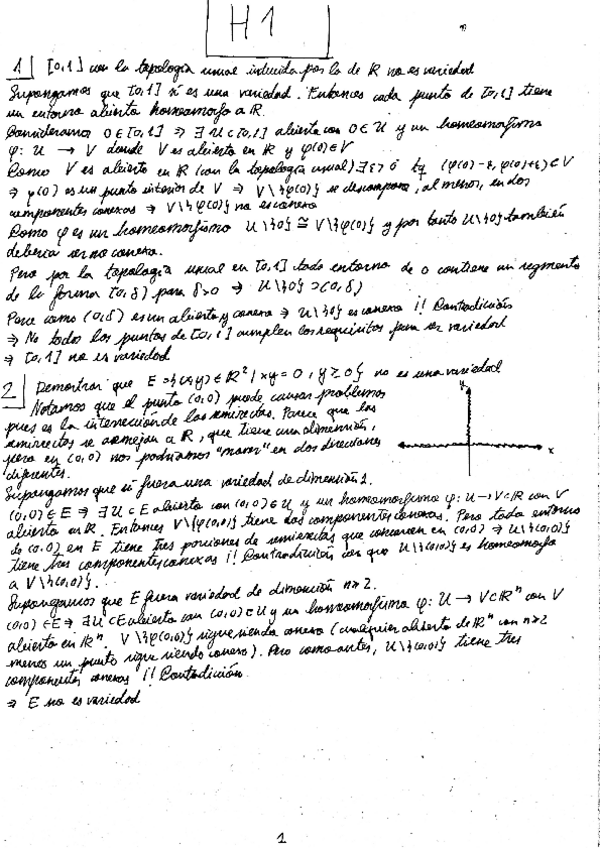 H1
1| [0,1] con la topología usual inducida por la de ℝ no es variedad
Supongamos que [0,1] sí es una variedad. Entonces cada punto de [0,1] tiene
un entorno abierto homeomorfo a ℝ.
Consideramos 0∈[0,1] ⇒ ∃ U⊂[0,1] abierto con 0∈U y un homeomorfismo
φ: U → V donde V es abierto en ℝ y φ(0)∈V
Como V es abierto en ℝ (con la topología usual) ∃ε>0 tq (φ(0)-ε, φ(0)+ε)⊂V
⇒ φ(0) es un punto interior de V ⇒ V\{φ(0)} se descompone, al menos, en dos
componentes conexas ⇒ V\{φ(0)} no es conexo
Como φ es un homeomorfismo U\{0} ≅ V\{φ(0)} y por tanto U\{0} también
debería ser no conexo.
Pero por la topología usual en [0,1] todo entorno de 0 contiene un segmento
de la forma [0,δ) para δ>0 ⇒ U\{0} ⊃ (0,δ)
Pero como (0,δ) es un abierto y conexo ⇒ U\{0} es conexo ¡! Contradicción
⇒ No todos los puntos de [0,1] cumplen los requisitos para ser variedad
⇒ [0,1] no es variedad
2| Demostrar que E={(x,y)∈ℝ² | xy=0, y≥0} no es una variedad
Notamos que el punto (0,0) puede causar problemas
pues es la intersección de las semirrectas. Parece que las
semirrectas se asemejan a ℝ, que tiene una dimensión,
pero en (0,0) nos podríamos "mover" en dos direcciones
diferentes.
x
Supongamos que sí fuera una variedad de dimensión 1.
(0,0)∈E ⇒ ∃ U⊂E abierto con (0,0)∈U y un homeomorfismo φ: U→V⊂ℝ con V
abierto en ℝ. Entonces V\{φ(0,0)} tiene dos componentes conexas. Pero todo entorno
de (0,0) en E tiene tres porciones de semirrectas que concurren en (0,0) ⇒ U\{(0,0)}
tiene tres componentes conexas ¡! Contradicción con que U\{(0,0)} es homeomorfo
a V\{(0,0)}.
Supongamos que E fuera variedad de dimensión n≥2.
(0,0)∈E ⇒ ∃U⊂E abierto con (0,0)∈U y un homeomorfismo φ: U → V⊂ℝⁿ con V
abierto en ℝⁿ. V\{φ(0,0)} sigue siendo conexo (cualquier abierto de ℝⁿ con n≥2
menos un punto sigue siendo conexo). Pero como antes, U\{(0,0)} tiene tres
componentes conexas ¡! Contradicción.
⇒ E no es variedad
1